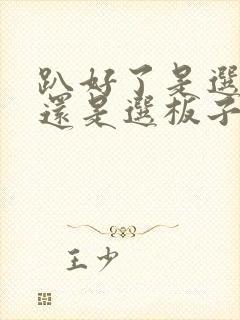 趴好了是選
還是選板子
王少